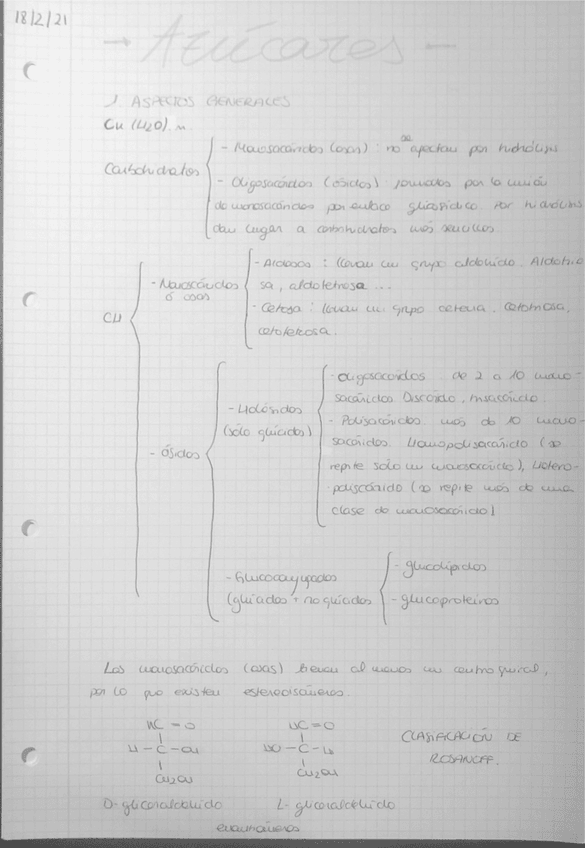 18/2/21
→ Azúcares —
1. ASPECTOS GENERALES
Cn (H2O) n.
Carbohidratos
- Monosacáridos (osas) : no se afectan por hidrólisis
- Oligosacáridos (ósidos) formados por la unión
de monosacáridos por enlace glicosídico. Por hidrólisis
dan lugar a carbohidratos más sencillos
CH
- Monosacáridos
ó osas
- Aldosas : llevan un grupo aldehído. Aldotrio
sa, aldotetrosa ...
- Cetosa : llevan un grupo cetona. Cetotriosa,
cetotetrosa.
- Ósidos
- Holósidos
(sólo glúcidos)
- Oligosacáridos de 2 a 10 mono-
sacáridos. Disacárido, trisacárido
- Polisacáridos más de 10 mono-
sacáridos. Homopolisacárido (se
repite sólo un monosacárido), Hetero-
polisacárido (se repite más de una
clase de monosacárido)
- Glucoconjugados
(glúcidos + no glúcidos)
- glucolípidos
- glucoproteínas
Los monosacáridos (osas) tienen al menos un centro quiral,
por lo que existen estereoisómeros.
HC = O
H - C - OH
CH2OH
HC = O
HO - C - H
CH2OH
CLASIFICACIÓN DE
ROSANOFF.
D-gliceraldehído L-gliceraldehído
enantiómeros